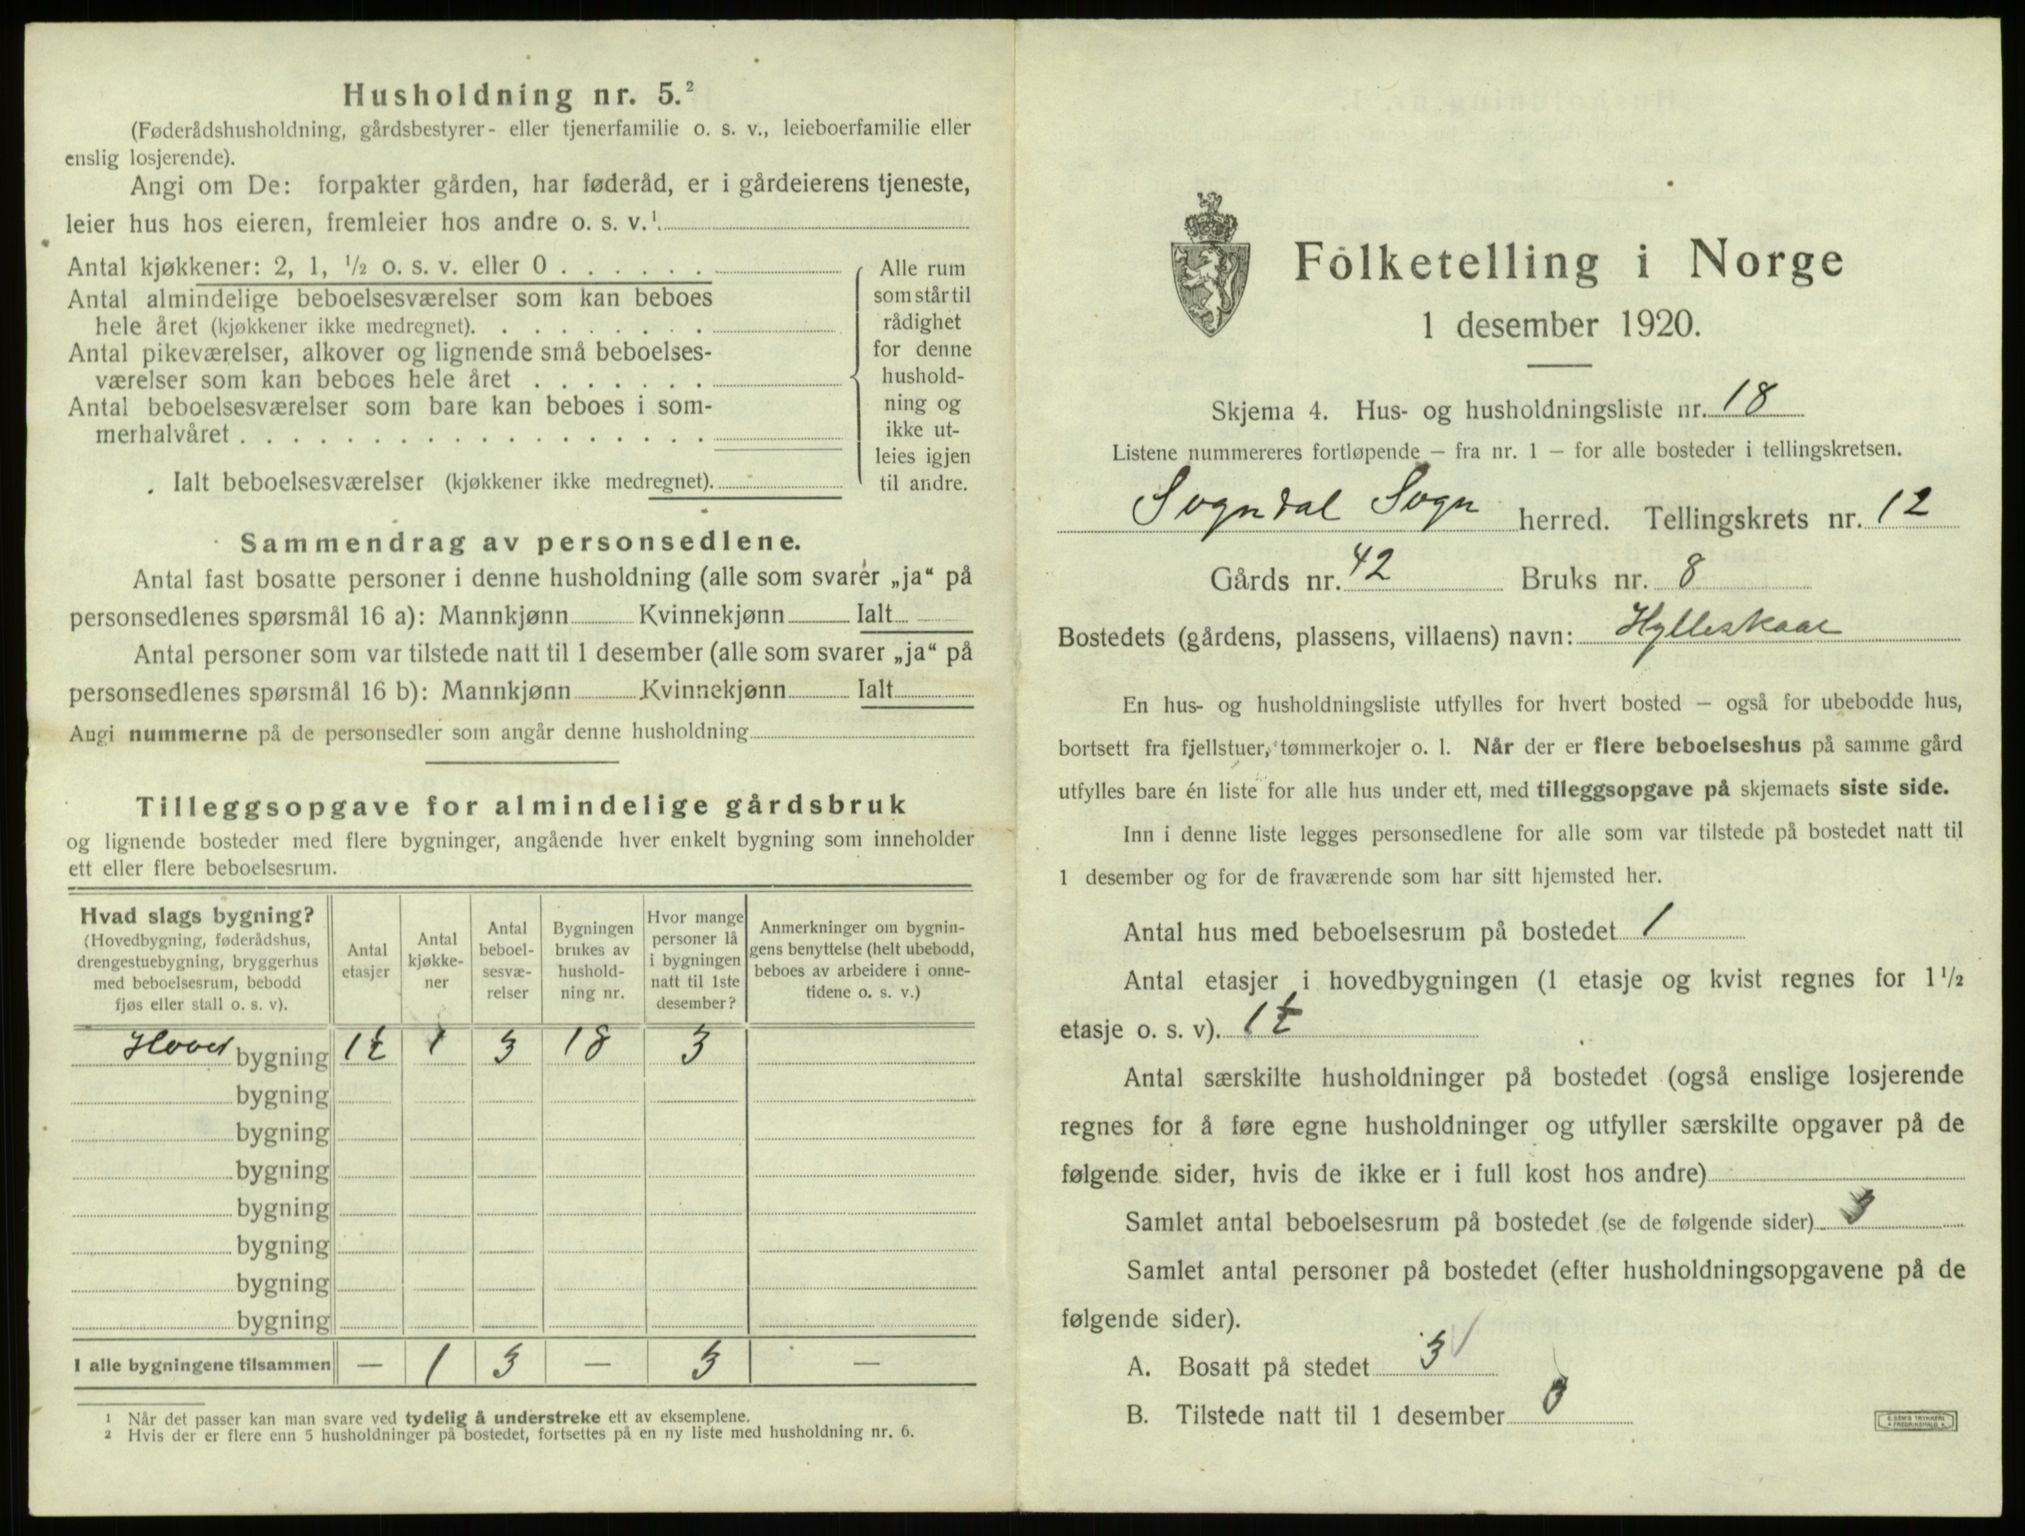 Husholdning nr. 5.²
(Føderådshusholdning, gårdsbestyrer- eller tjenerfamilie o. s. v., leieboerfamilie eller
enslig losjerende).
Angi om De: forpakter gården, har føderåd, er i gårdeierens tjeneste,
leier hus hos eieren, fremleier hos andre o. s. v.¹
Antal kjøkkener: 2, 1, ½ o. s. v. eller 0
Antal almindelige beboelsesværelser som kan beboes
hele året (kjøkkener ikke medregnet).
Antal pikeværelser, alkover og lignende små beboelses-
værelser som kan beboes hele året
Antal beboelsesværelser som bare kan beboes i som-
merhalvåret
Ialt beboelsesværelser (kjøkkener ikke medregnet).
Alle rum
som står til
rådighet
for denne
hushold-
ning og
ikke ut-
leies igjen
til andre.
Sammendrag av personsedlene.
Antal fast bosatte personer i denne husholdning (alle som svarer „ja“ på
personsedlenes spørsmål 16 a): Mannkjønn Kvinnekjønn Ialt
Antal personer som var tilstede natt til 1 desember (alle som svarer „ja“ på
personsedlenes spørsmål 16 b): Mannkjønn Kvinnekjønn Ialt
Angi nummerne på de personsedler som angår denne husholdning
Tilleggsopgave for almindelige gårdsbruk
og lignende bosteder med flere bygninger, angående hver enkelt bygning som inneholder
ett eller flere beboelsesrum.
Hvad slags bygning?
(Hovedbygning, føderådshus,
drengestuebygning, bryggerhus
med beboelsesrum, bebodd
fjøs eller stall o. s. v).
Antal
etasjer
Antal
kjøkke-
ner
Antal
beboel-
sesvæ-
relser
Bygningen
brukes av
hushold-
ning nr.
Hvor mange
personer lå
i bygningen
natt til 1ste
desember?
Anmerkninger om bygnin-
gens benyttelse (helt ubebodd,
beboes av arbeidere i onne-
tidene o. s. v.)
Hoved bygning 1½ 1 3 18 3
bygning
bygning
bygning
bygning
bygning
bygning
bygning
I alle bygningene tilsammen — 1 3 — 3 —
¹ Når det passer kan man svare ved tydelig å understreke ett av eksemplene.
² Hvis der er flere enn 5 husholdninger på bostedet, fortsettes på en ny liste med husholdning nr. 6.
Folketelling i Norge
1 desember 1920.
Skjema 4. Hus- og husholdningsliste nr. 18
Listene nummereres fortløpende — fra nr. 1 — for alle bosteder i tellingskretsen.
Sogndal Sogn herred. Tellingskrets nr. 12
Gårds nr. 42 Bruks nr. 8
Bostedets (gårdens, plassens, villaens) navn: Hylleskaar
En hus- og husholdningsliste utfylles for hvert bosted — også for ubebodde hus,
bortsett fra fjellstuer, tømmerkojer o. l. Når der er flere beboelseshus på samme gård
utfylles bare én liste for alle hus under ett, med tilleggsopgave på skjemaets siste side.
Inn i denne liste legges personsedlene for alle som var tilstede på bostedet natt til
1 desember og for de fraværende som har sitt hjemsted her.
Antal hus med beboelsesrum på bostedet 1
Antal etasjer i hovedbygningen (1 etasje og kvist regnes for 1½
etasje o. s. v). 1½
Antal særskilte husholdninger på bostedet (også enslige losjerende
regnes for å føre egne husholdninger og utfyller særskilte opgaver på de
følgende sider, hvis de ikke er i full kost hos andre)
Samlet antal beboelsesrum på bostedet (se de følgende sider) 3
Samlet antal personer på bostedet (efter husholdningsopgavene på de
følgende sider).
A. Bosatt på stedet 3
B. Tilstede natt til 1 desember